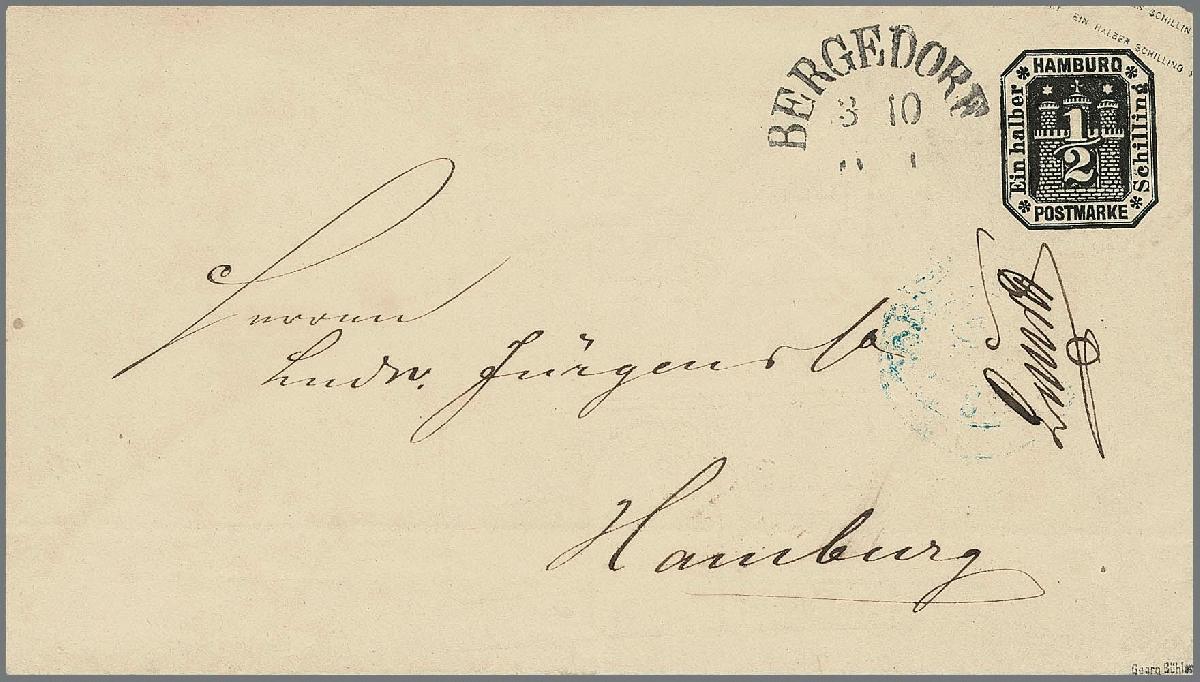 EIN HALBER SCHILLING
BERGEDORF
8 10
HAMBURG
Ein halber
1/2
Schilling
POSTMARKE
Herren
Ludw. Jürgens
Hamburg
Georg Bühler